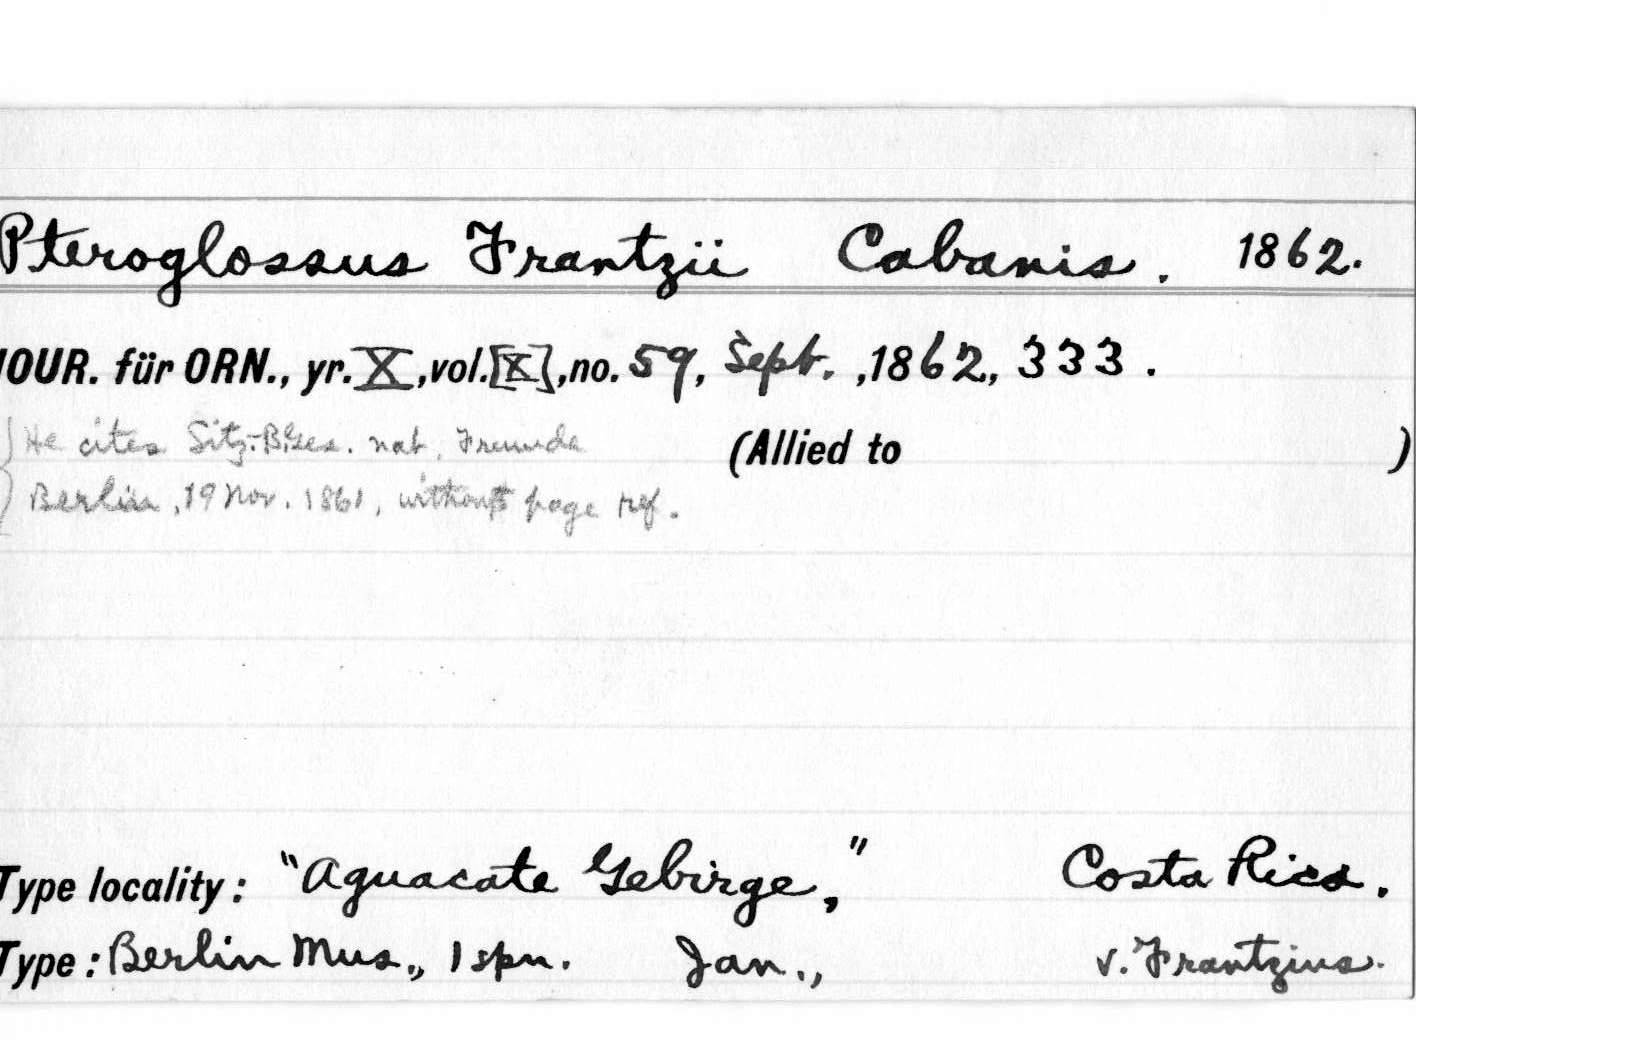 Pteroglossus Frantzii Cabanis. 1862.
JOUR. für ORN., yr. X, vol. [X], no. 59, Sept. , 1862, 333.
He cites Sitz.-B. Ges. nat. Freunde (Allied to )
Berlin, 19 Nov. 1861, without page ref.
Type locality: "Aguacate Gebirge," Costa Rica.
Type: Berlin Mus., 1 spn. Jan., v. Frantzius.